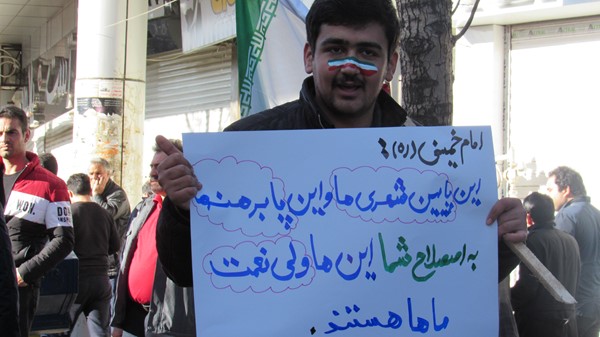 امام خمینی (ره):
این پایین شهری ها و این پا برهنه ها
به اصطلاح شما این ها ولی نعمت
ما ها هستند.
WOV.